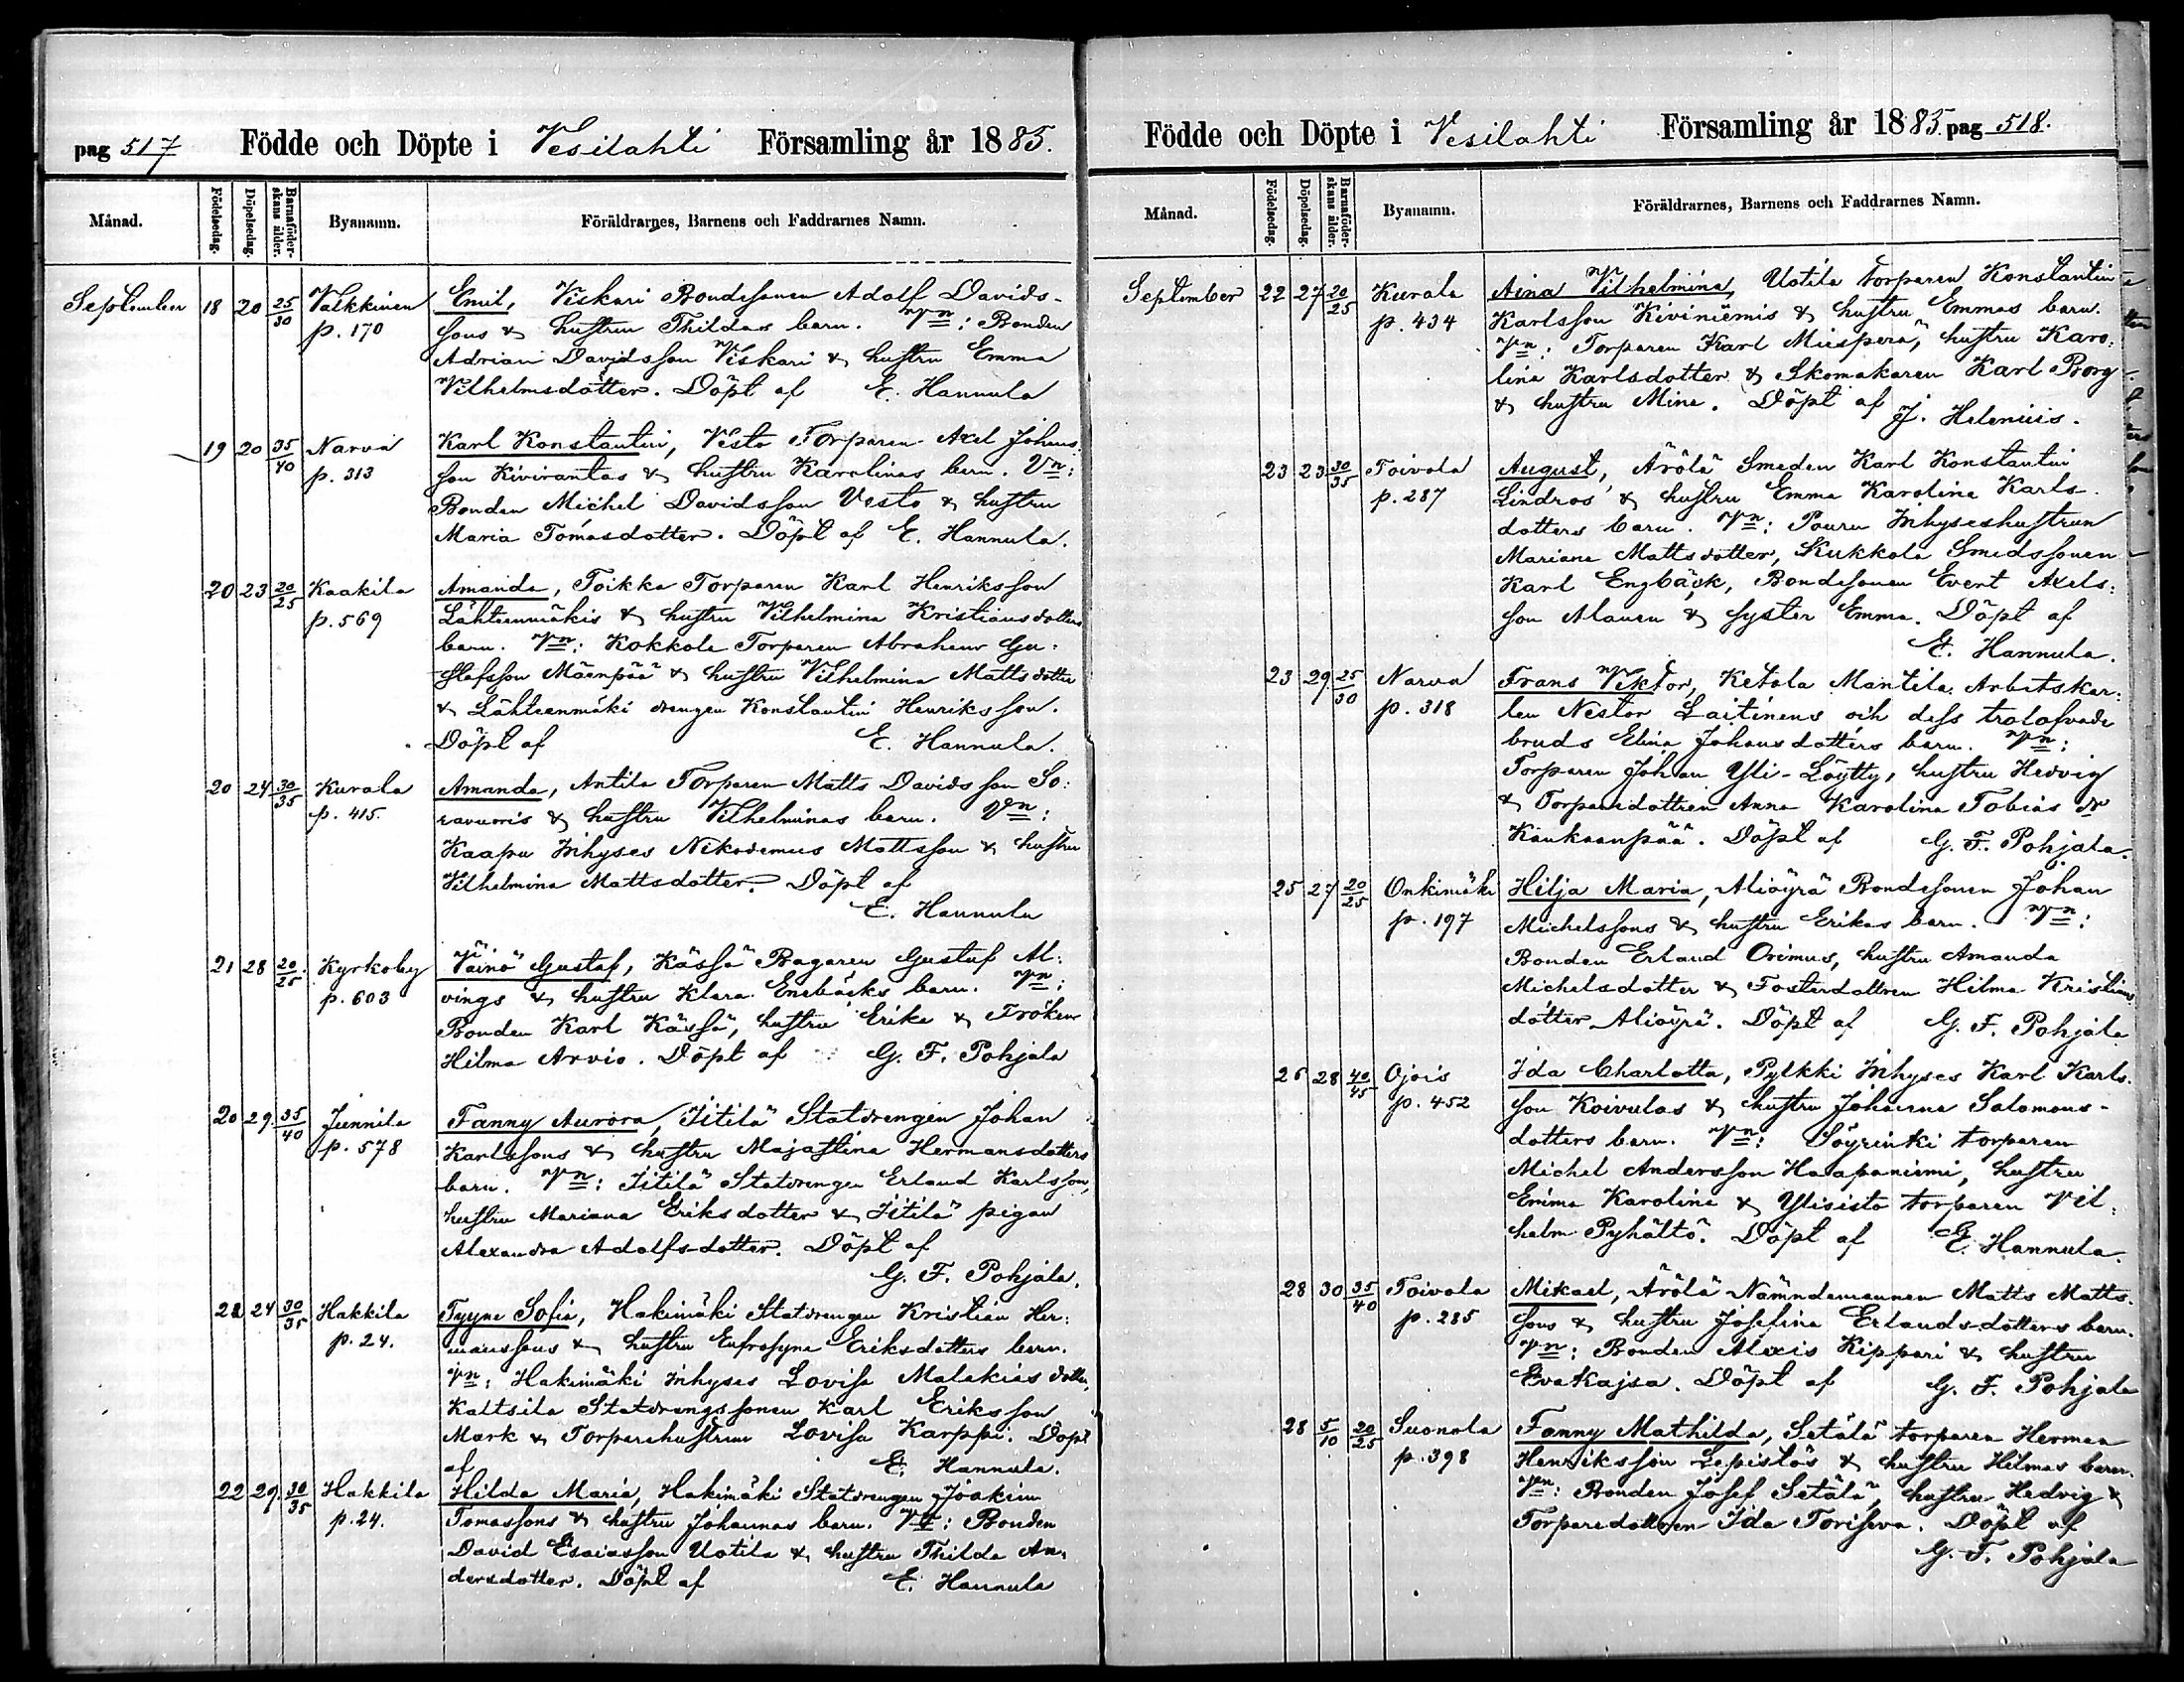 pag 517 Födde och Döpte i Vesilahti Församling år 1885.
Månad. Födelsedag. Döpelsedag. Barnaföderskans ålder. Bynamn. Föräldrarnes, Barnens och Faddrarnes Namn.
September 18 20 25/30 Valkkinen Emil, Viskari Bondesonen Adolf Davids-
p. 170 sons & hustrun Thildas barn. Vn: Bonden
Adrian Davidsson Viskari & hustru Emma
Vilhelmsdotter. Döpt af E. Hannula
19 20 35/40 Narva Karl Konstantin, Vesto Torparen Axel Johans
p. 313 son Kivirantas & hustru Karolinas barn. Vn:
Bonden Michel Davidsson Vesto & hustru
Maria Tomasdotter. Döpt af E. Hannula.
20 23 20/25 Kaakila Amanda, Toikka Torparen Karl Henriksson
p. 569 Lähteenmäkis & hustru Vilhelmina Kristiansdotters
barn. Vn: Kokkola Torparen Abraham Gu:
stafsson Mäenpää & hustru Vilhelmina Mattsdotter
& Lähteenmäki drengen Konstantin Henriksson.
Döpt af E. Hannula.
20 24 30/35 Kurala Amanda, Antila Torparen Matts Davidsson So:
p. 415. ravuoris & hustru Vilhelminas barn. Vn:
Kaapu Inhyses Nikodemus Mattsson & hustru
Vilhelmina Mattsdotter. Döpt af
E. Hannula
21 28 20/25 Kyrkoby Väinö Gustaf, Kässä Bagaren Gustaf Al:
p. 603 vings & hustru Klara Enebäcks barn. Vn:
Bonden Karl Kässä, hustru Erika & Fröken
Hilma Arvio. Döpt af G. F. Pohjala
20 29. 35/40 Junnila Fanny Aurora, Iitilä Statdrengen Johan
p. 578 Karlssons & hustru Majastina Hermansdotters
barn. Vn: Iitilä Statdrengen Erland Karlsson,
hustru Mariana Eriksdotter & Iitilä pigan
Alexandra Adolfsdotter. Döpt af
G. F. Pohjala.
22 24 30/35 Hakkila Tyyne Sofia, Hakimäki Statdrengen Kristian Her:
p. 24. manssons & hustru Eufrosyne Eriksdotters barn.
Vn: Hakimäki Inhyses Lovisa Malakiasdotter,
Kaltsila Statdrengssonen Karl Eriksson
Mark & Torparehustrun Lovisa Karppi. Döpt
af E. Hannula.
22 29. 30/35 Hakkila Hilda Maria, Hakimäki Statdrengen Joakim
p. 24. Tomassons & hustru Johannas barn. Vn: Bonden
David Esaiasson Uotila & hustru Thilda An:
dersdotter. Döpt af E. Hannula
Födde och Döpte i Vesilahti Församling år 1885. pag 518.
Månad. Födelsedag. Döpelsedag. Barnaföderskans ålder. Bynamn. Föräldrarnes, Barnens och Faddrarnes Namn.
September 22 27 20/25 Kurala Aina Vilhelmina, Uotila torparen Konstantin
p. 434 Karlsson Kiviniemis & hustru Emmas barn.
Vn: Torparen Karl Miesperä, hustru Karo:
lina Karlsdotter & Skomakaren Karl Borg
& hustru Mina. Döpt af J. Helenius.
23 23 30/35 Toivola August, Ärölä Smeden Karl Konstantin
p. 287 Lindros & hustru Emma Karolina Karls-
dotters barn. Vn: Pouru Inhyseshustrun
Mariana Mattsdotter, Kukkola Smedssonen
Karl Engbäck, Bondesonen Evert Axels:
son Alanen & syster Emma. Döpt af
E. Hannula.
23 29. 25/30 Narva Frans Viktor, Ketola Mantila Arbetskar:
p. 318 len Nestor Laitinens och dess trolofvade
bruds Elina Johansdotters barn. Vn:
Torparen Johan Yli-Löytty, hustru Hedvig
& Torparedottren Anna Karolina Tobias dr
Kaukaanpää. Döpt af G. F. Pohjala.
25 27 20/25 Onkimäki Hilja Maria, Alioyrä Bondesonen Johan
p. 197 Michelssons & hustru Erikas barn. Vn:
Bonden Erland Orimus, hustru Amanda
Michelsdotter & Fosterdottren Hilma Kristians
dotter Alioyrä. Döpt af G. F. Pohjala
26 28 40/45 Ojois Ida Charlotta, Pylkki Inhyses Karl Karls.
p. 452 son Koivulas & hustru Johanna Salomons-
dotters barn. Vn: Söyrinki torparen
Michel Andersson Haapaniemi, hustru
Emma Karolina & Ylisisto torparen Vil:
helm Pyhältö. Döpt af E. Hannula.
28 30 35/40 Toivola Mikael, Ärölä Nämndemannen Matts Matts.
p. 285 sons & hustru Josefina Erlandsdotters barn.
Vn: Bonden Alexis Kippari & hustru
Eva Kajsa. Döpt af G. F. Pohjala
28 5/10 20/25 Suonola Fanny Mathilda, Setälä torparen Herman
p. 398 Henriksson Lepistös & hustru Hilmas barn.
Vn: Bonden Josef Setälä, hustru Hedvig &
Torparedottren Ida Toriseva. Döpt af
G. F. Pohjala